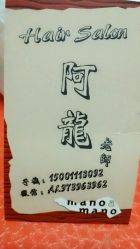 Hair Salon
阿龍
老師
手機:15001113092
微信:AL973963962
mano
mano